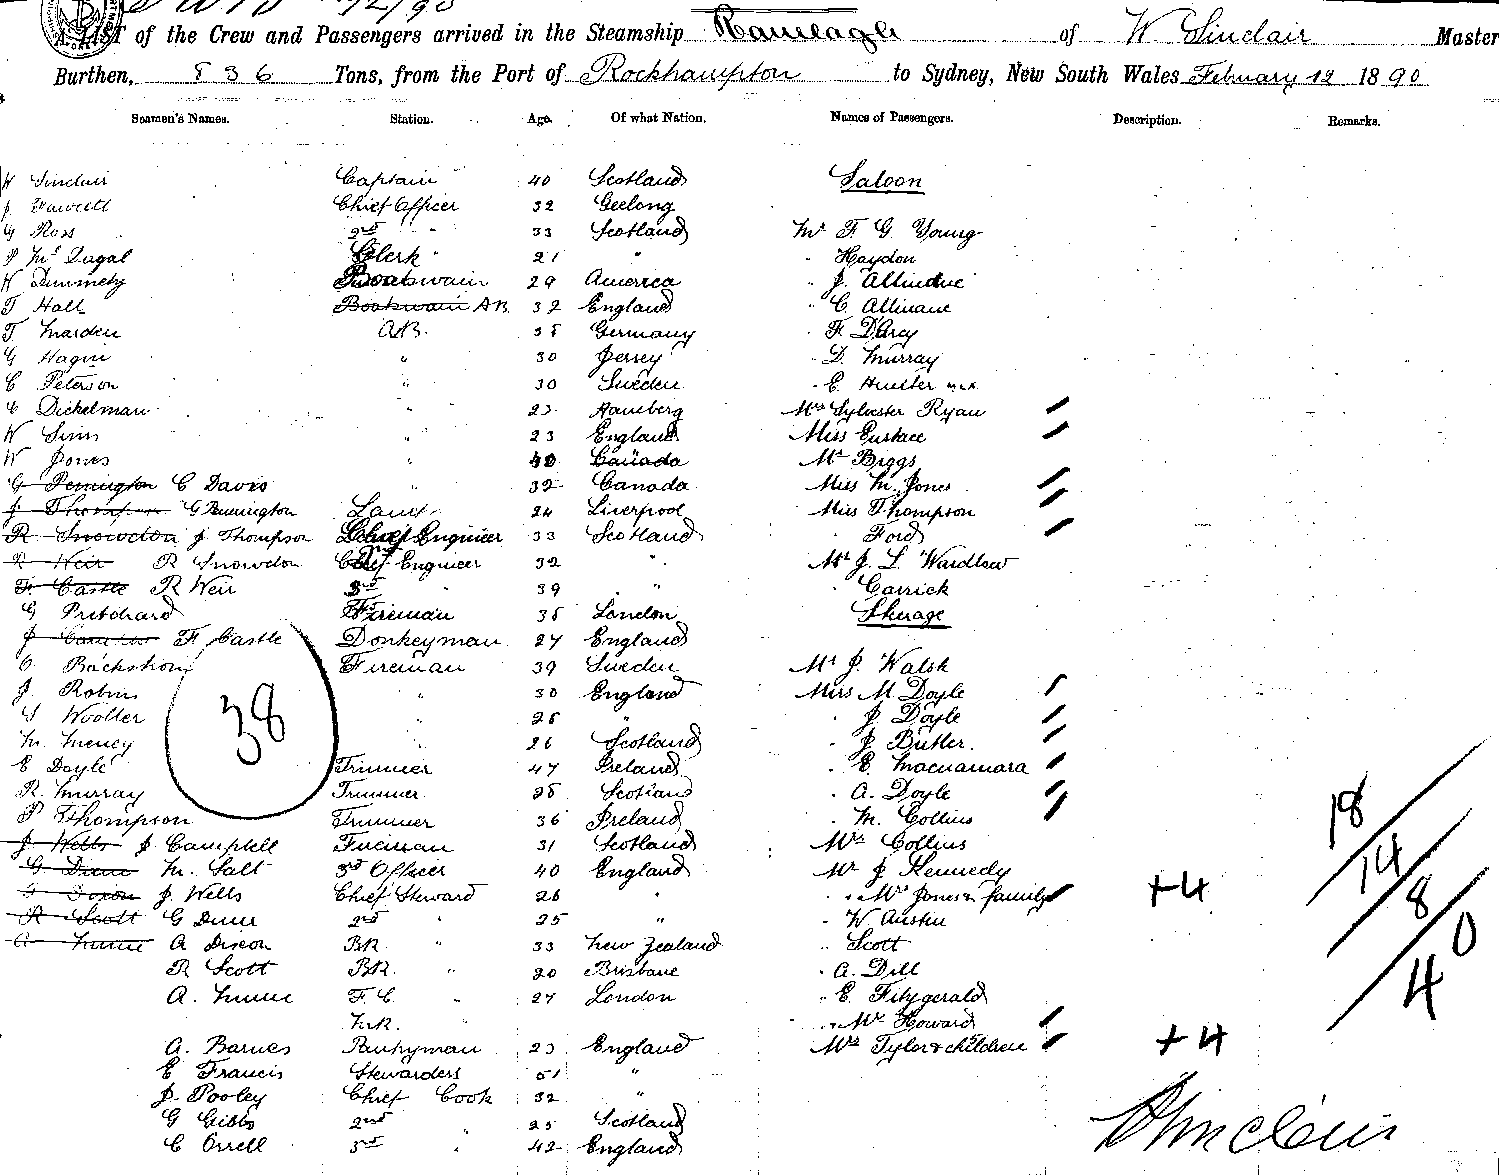 LIST of the Crew and Passengers arrived in the Steamship Ranelagh of W Sinclair Master
Burthen, 836 Tons, from the Port of Rockhampton to Sydney, New South Wales February 12 1890
Seamen's Names. Station. Age. Of what Nation. Names of Passengers. Description. Remarks.
W Sinclair Captain 40 Scotland Saloon
J Fawcett Chief Officer 32 Geelong
G Ross 2nd " 33 Scotland Mr F. G. Young
P McDugal Clerk 21 " " Haydon
W Boatswain 29 America " J.
T Hall Boatswain AB. 32 England " C.
T Marden A.B. 35 Germany " F D'Arcy
G Hagin " 30 Jersey " D. Murray
C Peterson " 30 Sweden " E.
C Dickelman " 23 Hamberg Mrs Sylvester Ryan
W Sims " 23 England Miss Eustace
W Jones " 40 Canada Mr Briggs
G Pennington C Davis " 32 Canada Miss M. Jones
J Thompson G Pennington Lamp 24 Liverpool Miss Thompson
R Snowdon J Thompson Chief Engineer 33 Scotland " Ford
R Weir R Snowdon Engineer 32 " Mr J. L. Wardlaw
F Castle R Weir 3rd " 39 " " Carrick
G Pritchard Fireman 35 London Sterage
J F. Castle Donkeyman 27 England
O Backstrom Fireman 39 Sweden Mr J. Walsh
J. Robins " 30 England Miss M Doyle
Wooller " 25 " " J Doyle
M. " 26 Scotland " J Butler.
38
E Doyle Trimmer 47 Ireland " E. Macnamara
R. Murray Trimmer 25 Scotland " A. Doyle
P Thompson Trimmer 36 Ireland " M. Collins
18
J Wells J Campbell Fireman 31 Scotland Mrs Collins
14
G Dunn M. Salt 3rd Officer 40 England Mr J Kennedy
J. Wells Chief Steward 26 " " Mrs Jones & family +4
8
R Scott G Dunn 2nd " 25 " " W Austin
0
A A Dixon BR. " 33 New Zealand " Scott
R Scott BR. " 20 Brisbane " A. Dill
4
A. F. C. " 27 London " E. Fitzgerald
" Mrs Howard
A. Barnes Pantryman 23 England Mrs Tyler & children +4
E Francis Stewardess 51 "
J. Pooley Chief Cook 32 "
G Gibbs 2nd " 25 Scotland
C Orrell 3rd " 42 England
W Sinclair